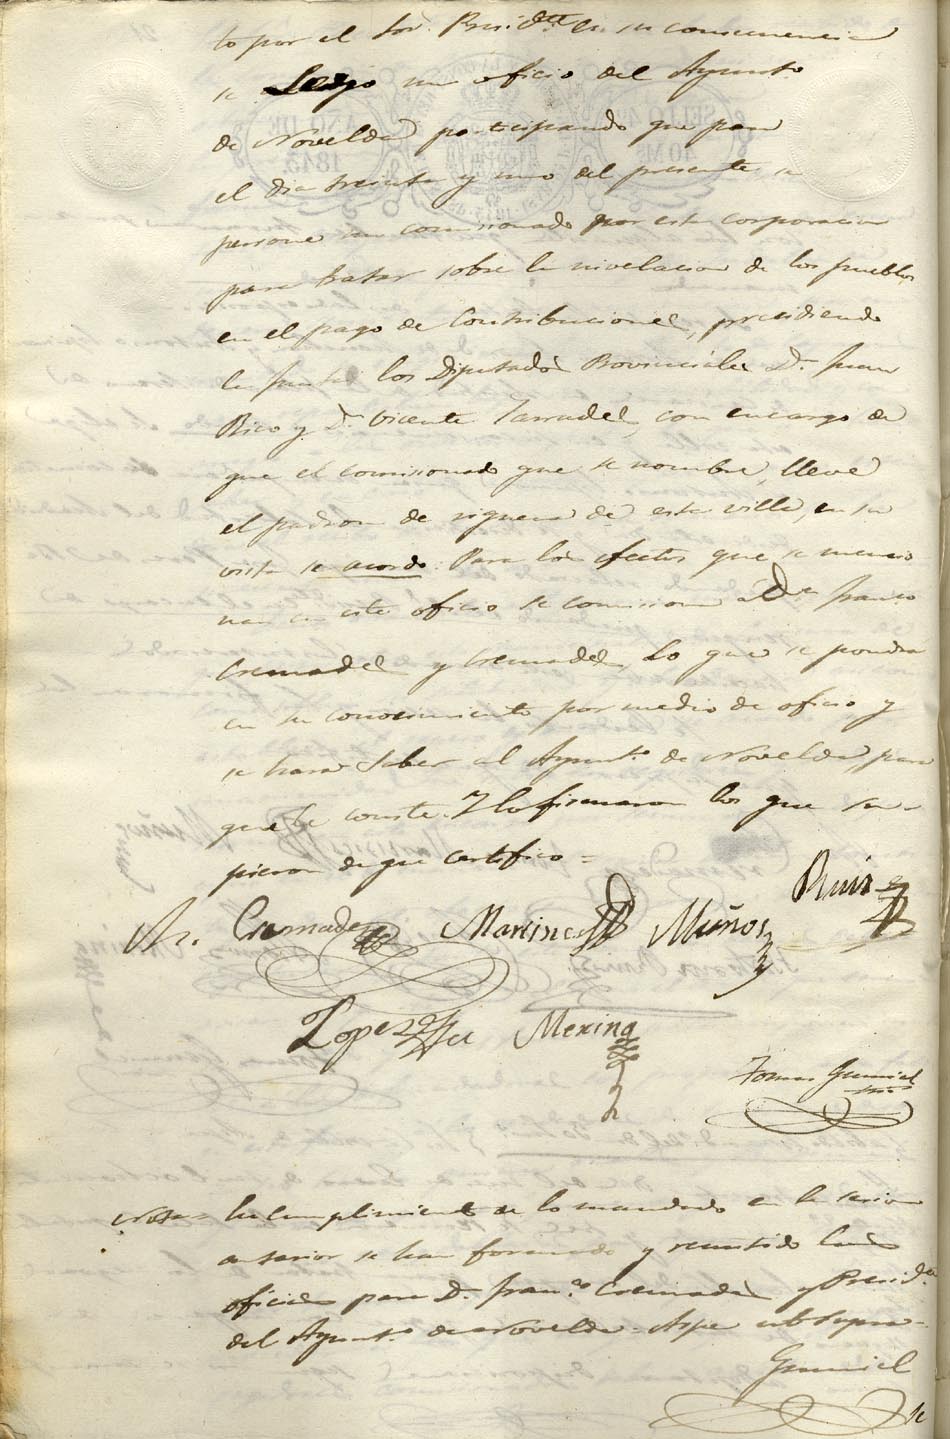 to por el Sor. Presidte. en su consecuencia
se Leyo un oficio del Ayunto
de Novelda participando que para
el dia treinta y uno del presente se
persone un comisionado por esta corporacion
para tratar sobre la nivelacion de los pueblos
en el pago de Contribuciones, presidiendo
la junta los Diputados Provinciales Dn. Juan
Rico y Dn. Vicente Tarradel, con encargo de
que el comisionado que se nombre, lleve
el padron de riqueza de esta villa, en su
vista se acordo: Para los efectos que se mencio
nan en este oficio se comisiona a Dn. Franco
Cremades y Cremades, Lo que se pondra
en su conocimiento por medio de oficio y
se hara saber al Ayunto. de Novelda, para
que le conste. Y lo firmaron los que su-
pieron de que certifico =
Cremades Martinez Muños Ruiz
Lopez Merina
Tomas Gumiel
Nota = En cumplimiento de lo mandado en la sesion
anterior se han formado y remitido los
oficios para Dn. Franco Cremades y Presidte.
del Ayunto. de Novelda. Aspe ut supra =
Gumiel